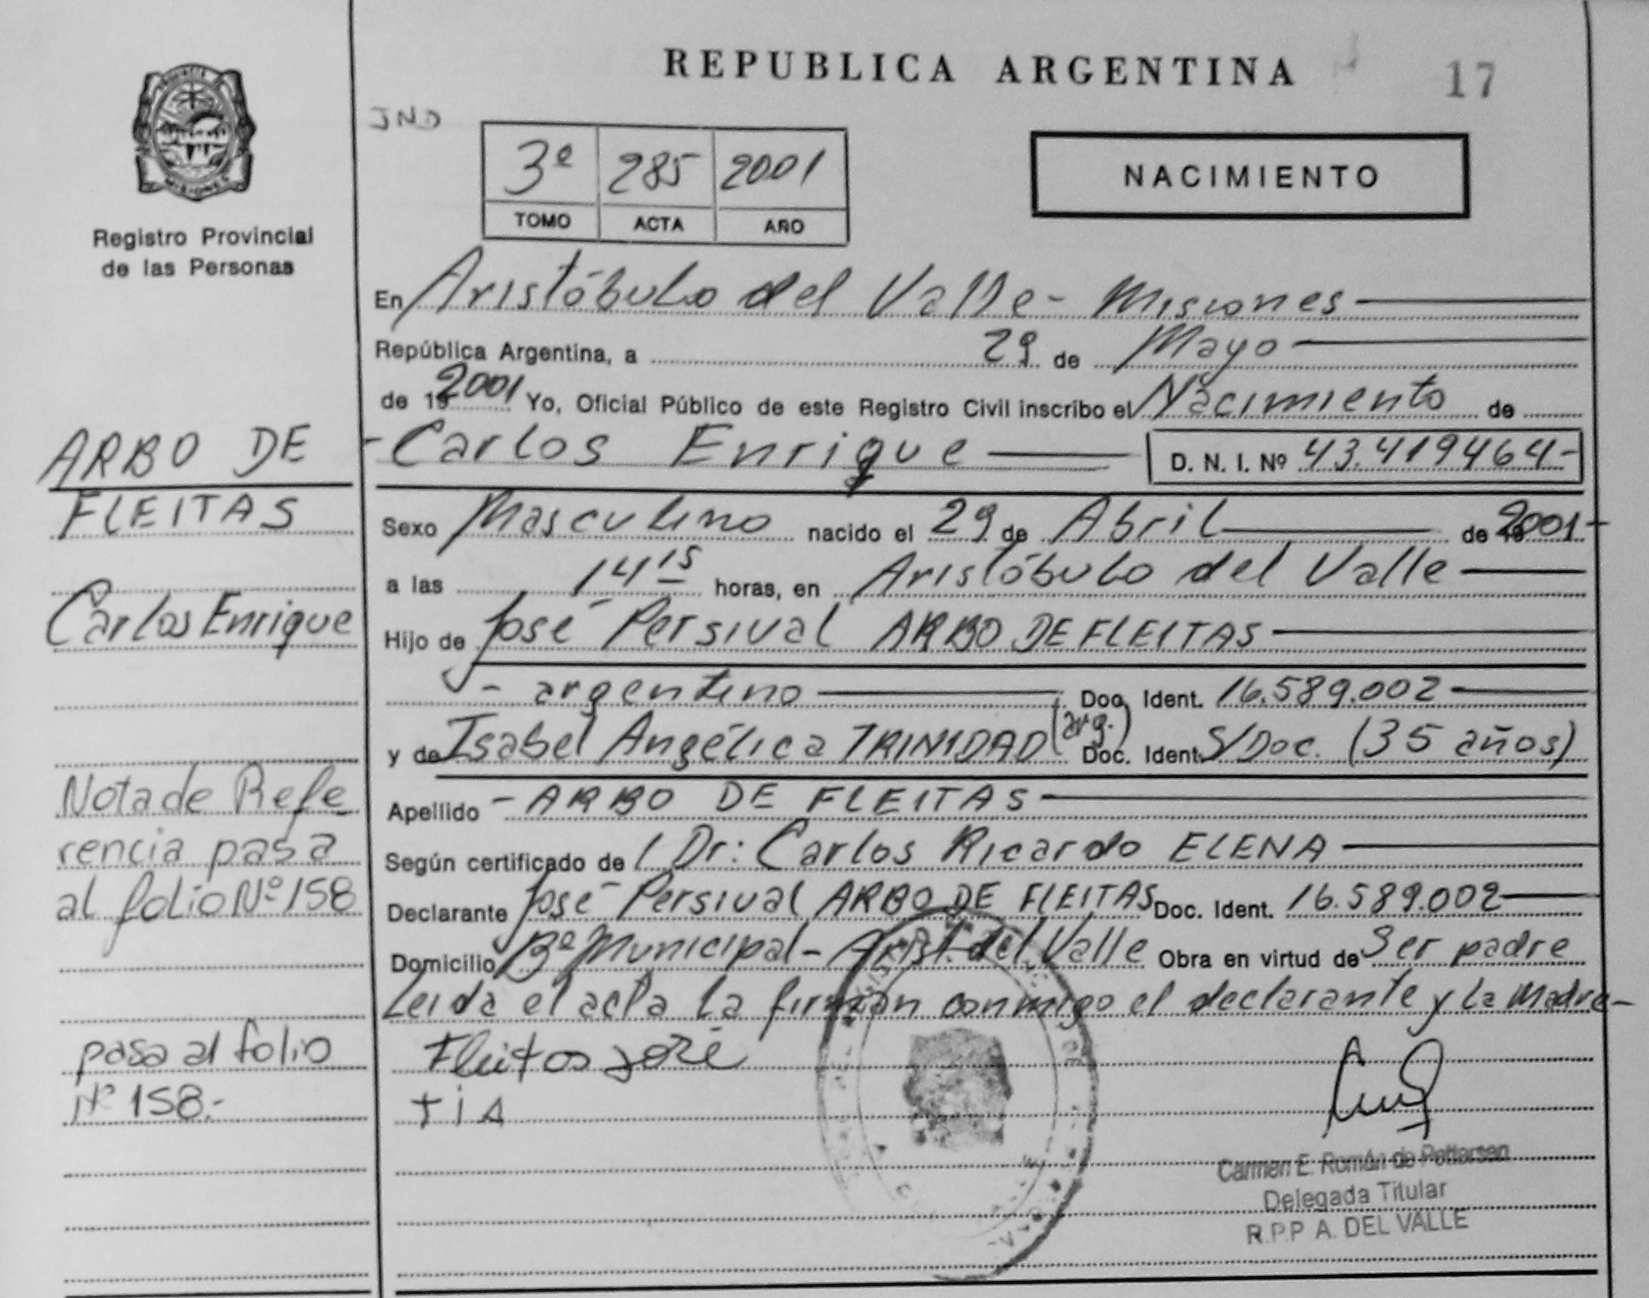 REPUBLICA ARGENTINA
17
IND
3º 285 2001
TOMO ACTA AÑO
NACIMIENTO
MISIONES
Registro Provincial
de las Personas
En Aristóbulo del Valle - Misiones
República Argentina, a 29 de Mayo
de 2001 Yo, Oficial Público de este Registro Civil inscribo el Nacimiento de
- Carlos Enrique D. N. I. Nº 43.419464-
Sexo Masculino nacido el 29 de Abril de 2001-
a las 14 15 horas, en Aristóbulo del Valle
Hijo de José Persival ARBO DE FLEITAS
- argentino Doc. Ident. 16.589.002
y de Isabel Angélica TRINIDAD (arg.) Doc. Ident. S/Doc. (35 años)
Apellido - ARBO DE FLEITAS
Según certificado de Dr: Carlos Ricardo ELENA
Declarante José Persival ARBO DE FLEITAS Doc. Ident. 16.589.002
Domicilio Bº Municipal - Arist. del Valle Obra en virtud de Ser padre
Leida el acta la firman conmigo el declarante y la Madre-
Fleitas José
TIA
Carmen E. Román de Pettersen
Delegada Titular
R.P.P A. DEL VALLE
ARBO DE
FLEITAS
Carlos Enrique
Nota de Refe
rencia pasa
al folio Nº 158
pasa al folio
Nº 158.-